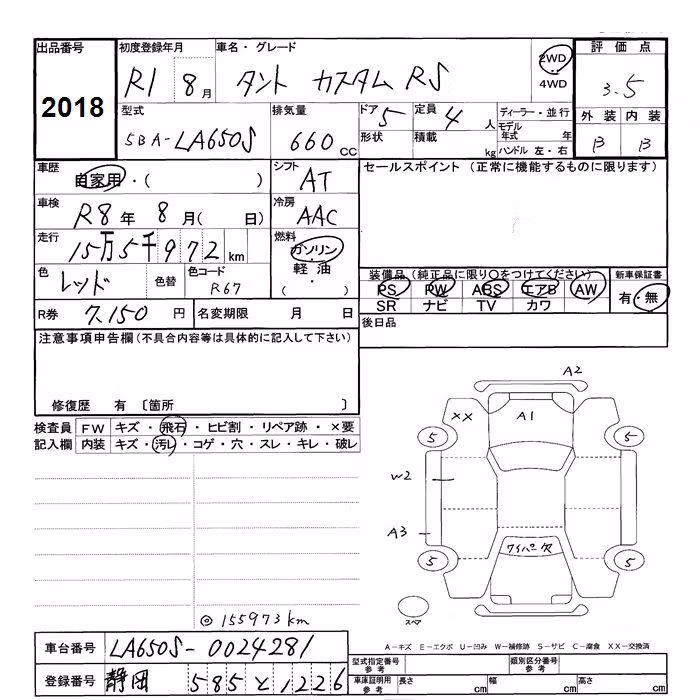 出品番号 初度登録年月 車名・グレード 評価点
2018 R1 8月 タント カスタム RS 2WD 4WD 3.5
型式 排気量 ドア 5 定員 4人 ディーラー・並行 外装 内装
5BA-LA650S 660cc 形状 積載 kg モデル年式 年 B B
ハンドル 左・右
車歴 自家用・( ) シフト AT セールスポイント (正常に機能するものに限ります)
車検 R8年 8月( 日) 冷房 AAC
走行 15万5千972km 燃料 ガソリン・軽油・( )
色 レッド 色替 色コード R67
装備品 (純正品に限り○をつけてください) 新車保証書
PS PW ABS エアB AW 有・無
SR ナビ TV カワ
R券 7,150円 名変期限 月 日 後日品
注意事項申告欄 (不具合内容等は具体的に記入して下さい)
修復歴 有 〔箇所 〕
検査員 FW キズ・飛石・ヒビ割・リペア跡・×要
記入欄 内装 キズ・汚レ・コゲ・穴・スレ・キレ・破レ
A2
XX A1
5 5
W2
A3
ワイパー欠
5 5
スペア
◎155973km
A-キズ E-エクボ U-凹み W-補修跡 S-サビ C-腐食 XX-交換済
車台番号 LA650S-0024281 型式指定番号 参考 類別区分番号 参考
登録番号 静岡 585 と 1226 車庫証明用 参考 長さ cm 幅 cm 高さ cm